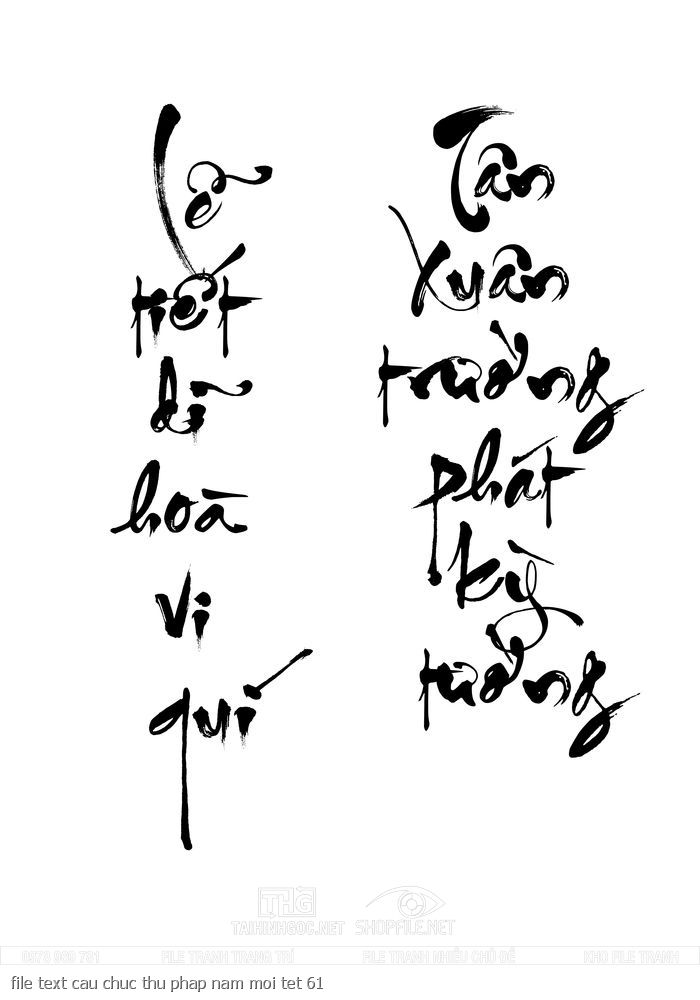 Lễ
tiết
dĩ
hoà
vi
quí
Tân
Xuân
trường
phát
kỳ
tường
THG
TAIHINHGOC.NET
SHOPFILE.NET
FILE TRANH TRANG TRÍ FILE TRANH NHIỀU CHỦ ĐỀ KHO FILE TRANH
file text cau chuc thu phap nam moi tet 61